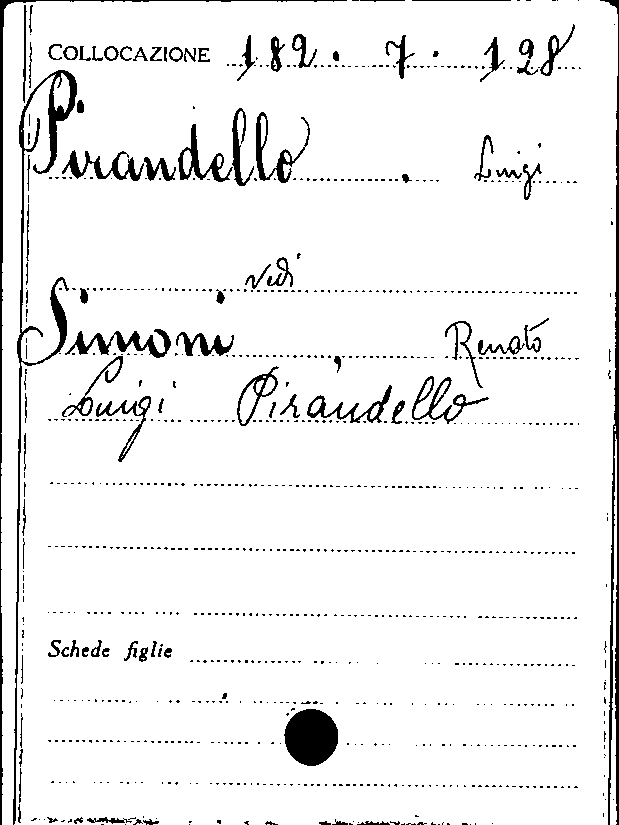 COLLOCAZIONE 182. 7. 128
Pirandello. Luigi
Vedi
Simoni, Renato
Luigi Pirandello
Schede figlie